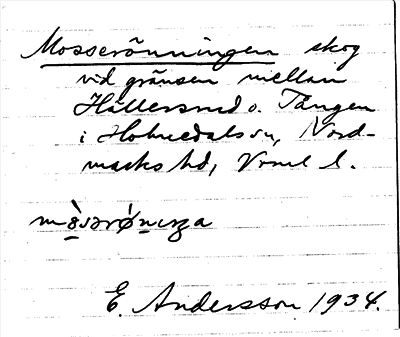 Mosserönningen skog
vid gränsen mellan
Hällersrud o. Tången
i Holmedals sn, Nord-
marks hd, Vrml l.
E. Andersson 1934.